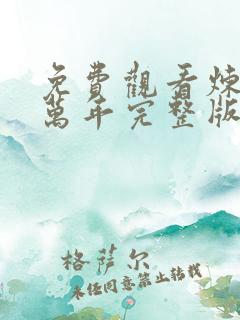 免費觀看煉
萬年完整版
格萨尔
未经同意禁止转载